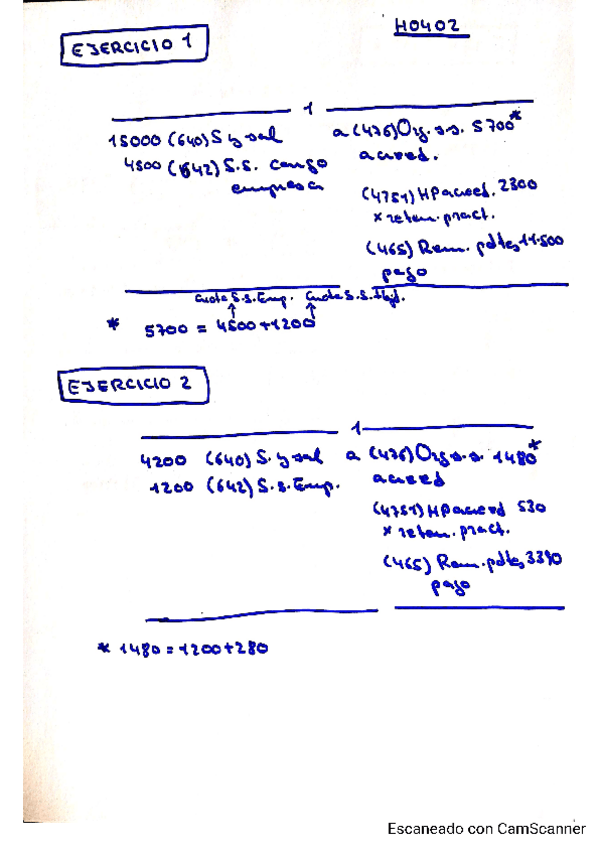 H0402
EJERCICIO 1
1
15000 (640) S y sal a (476) Org. s.s. 5700*
4500 (642) S.S. cargo acreed.
empresa
(4751) HP acreed. 2300
x reten. pract.
(465) Rem. pdtes 11.500
pago
Cuota S.S. Emp. Cuota S.S. Trbj.
* 5700 = 4500 + 1200
EJERCICIO 2
1
4200 (640) S. y sal a (476) Org s.s. 1480*
1200 (642) S.s. Emp. acreed
(4751) HP acreed 530
x reten. pract.
(465) Rem. pdtes 3390
pago
* 1480 = 1200 + 280
Escaneado con CamScanner